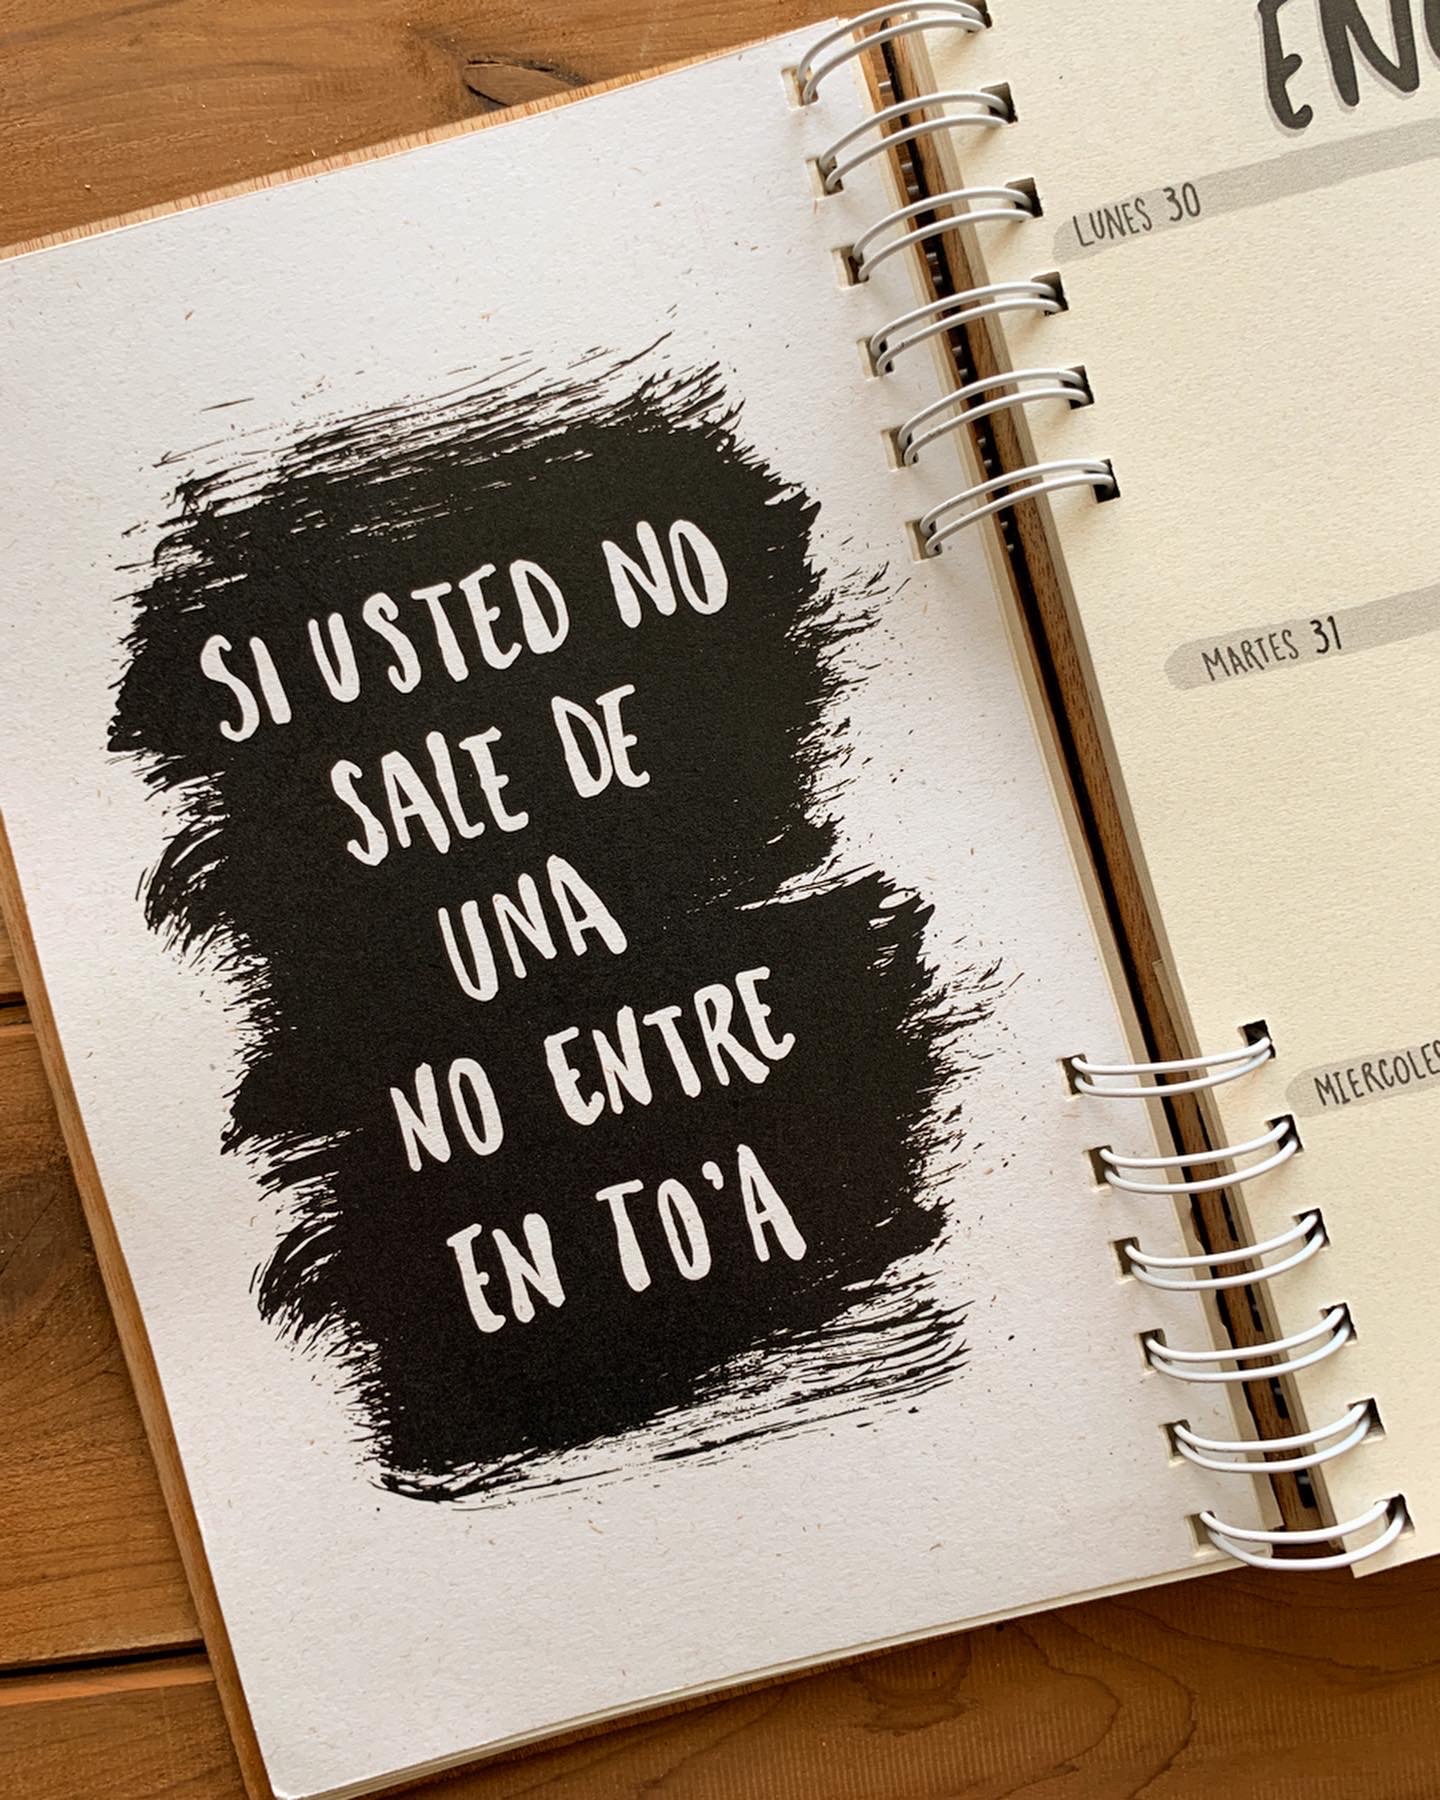 SI USTED NO
SALE DE
UNA
NO ENTRE
EN TO'A
LUNES 30
MARTES 31
MIERCOLES